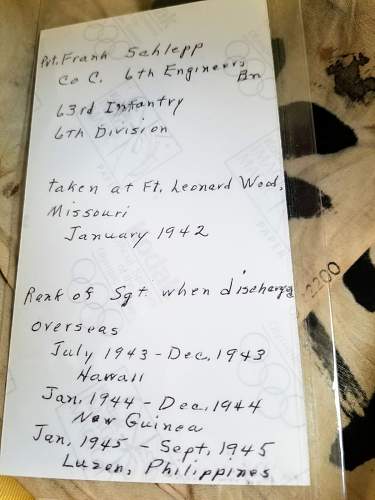 Pvt. Frank Schlepp
Co C. 6th Engineers
Bn
63rd Infantry
6th Division
taken at Ft. Leonard Wood,
Missouri
January 1942
Rank of Sgt. when discharg
overseas
July 1943 - Dec. 1943
Hawaii
Jan. 1944 - Dec. 1944
New Guinea
Jan. 1945 - Sept. 1945
Luzon, Philippines
2200